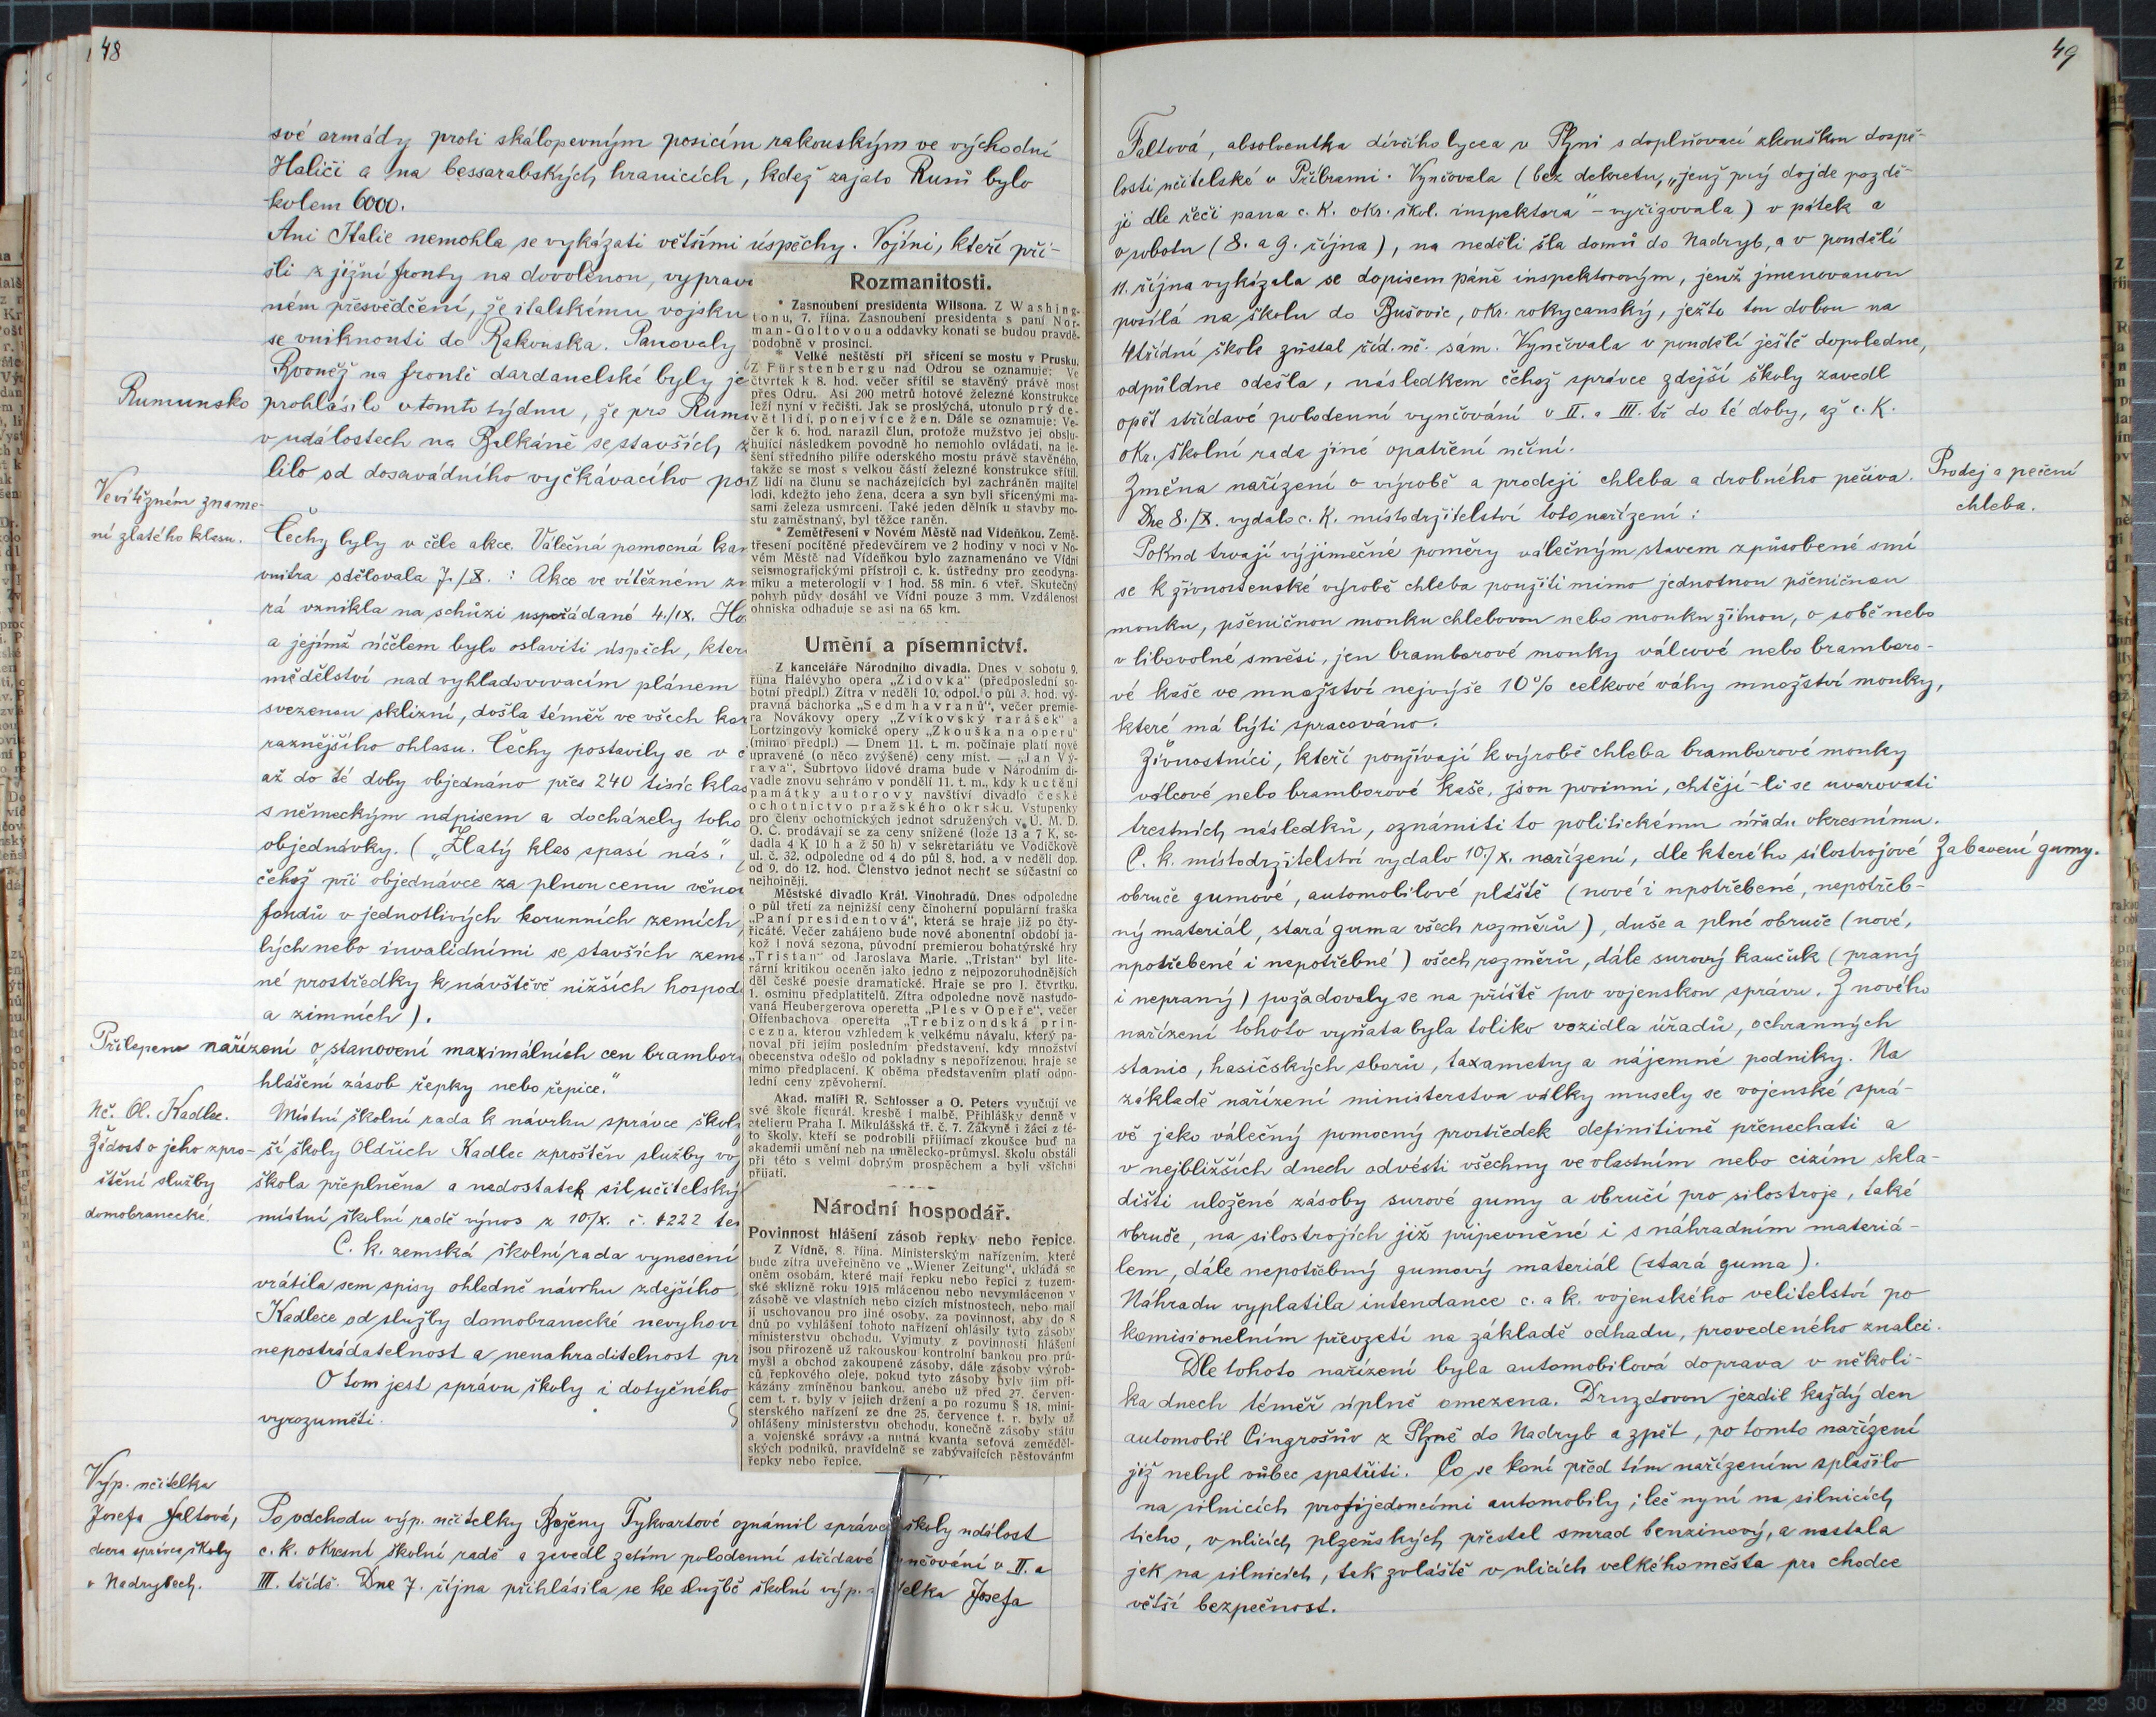 48
své armády proti skálopevným posicím rakouským ve východní
Haliči a na bessarabských hranicích, kdež zajato Rusů bylo
kolem 6000.
Ani Italie nemohla se vykázati většími úspěchy. Vojíni, kteří při-
šli z jižní fronty na dovolenou, vyprav
ném přesvědčení, že italskému vojsku
se vniknouti do Rakouska. Panovaly
Rovněž na frontě dardanelské byly je
Rumunsko
prohlásilo v tomto týdnu, že pro Rumu
v událostech na Balkáně se stavších z
lilo od dosavádního vyčkávacího po
Ve vítězném zname-
ní zlatého klasu.
Čechy byly v čele akce. Válečná pomocná kan
vnitra sdělovala 7./X. : Akce ve vítězném zn
rá vznikla na schůzi uspořádané 4./IX. Ho
a jejímž účelem bylo oslaviti úspěch, kter
mědělství nad vyhladovovacím plánem
svezenou sklizní, došla téměř ve všech kor
raznějšího ohlasu. Čechy postavily se v č
až do té doby objednáno přes 240 tisíc klas
s německým nápisem a docházely toho
objednávky. („Zlatý klas spasí nás."
čehož při objednávce za plnou cenu věno
fondů v jednotlivých korunních zemích,
lých nebo invalidními se stavších zem
né prostředky k návštěvě nižších hospod
a zimních).
Přilepeno nařízení o „stanovení maximálních cen brambor
hlášení zásob řepky nebo řepice."
Uč. Ol. Kadlec.
Žádost o jeho zpro-
štění služby
domobranecké.
Místní školní rada k návrhu správce škol
ší školy Oldřich Kadlec zproštěn služby voj
škola přeplněna a nedostatek sil učitelský
místní školní radě výnos z 10/X. č. 1222 te
C. k. zemská školní rada vynesení
vrátila sem spisy ohledně návrhu zdejšího
Kadlece od služby domobranecké nevyhov
nepostrádatelnost a nenahraditelnost pr
O tom jest správu školy i dotyčného
vyrozuměti.
Výp. učitelka
Josefa Faltová,
dcera správce školy
v Nadrybech.
Po odchodu výp. učitelky Boženy Tykvartové oznámil správce školy událost
c. k. okresní školní radě a zavedl zatím polodenní střídavé vyučování v II. a
III. třídě. Dne 7. října přihlásila se ke službě školní výp. učitelka Josefa
Rozmanitosti.
* Zasnoubení presidenta Wilsona. Z Washing-
tonu, 7. října. Zasnoubení presidenta s paní Nor-
man-Goltovou a oddavky konati se budou pravdě-
podobně v prosinci.
* Velké neštěstí při sřícení se mostu v Prusku.
Z Fürstenbergu nad Odrou se oznamuje: Ve
čtvrtek k 8. hod. večer sřítil se stavěný právě most
přes Odru. Asi 200 metrů hotové železné konstrukce
leží nyní v řečišti. Jak se proslýchá, utonulo prý de-
vět lidí, ponejvíce žen. Dále se oznamuje: Ve-
čer k 6. hod. narazil člun, protože mužstvo jej obslu-
hující následkem povodně ho nemohlo ovládati, na le-
šení středního pilíře oderského mostu právě stavěného,
takže se most s velkou částí železné konstrukce sřítil.
Z lidí na člunu se nacházejících byl zachráněn majitel
lodi, kdežto jeho žena, dcera a syn byli sřícenými ma-
sami železa usmrceni. Také jeden dělník u stavby mo-
stu zaměstnaný, byl těžce raněn.
* Zemětřesení v Novém Městě nad Vídeňkou. Země-
třesení pocítěné předevčírem ve 2 hodiny v noci v No-
vém Městě nad Vídeňkou bylo zaznamenáno ve Vídni
seismografickými přístroji c. k. ústředny pro geodyna-
miku a meterologii v 1 hod. 58 min. 6 vteř. Skutečný
pohyb půdy dosáhl ve Vídni pouze 3 mm. Vzdálenost
ohniska odhaduje se asi na 65 km.
Umění a písemnictví.
Z kanceláře Národního divadla. Dnes v sobotu 9.
října Halévyho opera „Židovka" (předposlední so-
botní předpl.) Zítra v neděli 10. odpol. o půl 3. hod. vý-
pravná báchorka „Sedm havranů", večer premie-
ra Novákovy opery „Zvíkovský rarášek" a
Lortzingovy komické opery „Zkouška na operu"
(mimo předpl.) — Dnem 11. t. m. počínaje platí nově
upravené (o něco zvýšené) ceny míst. — „Jan Vý-
rava", Šubrtovo lidové drama bude v Národním di-
vadle znovu sehráno v pondělí 11. t. m., kdy k uctění
památky autorovy navštíví divadlo české
ochotnictvo pražského okrsku. Vstupenky
pro členy ochotnických jednot sdružených v Ú. M. D.
O. Č. prodávají se za ceny snížené (lože 13 a 7 K, se-
dadla 4 K 10 h a ž 50 h) v sekretariátu ve Vodičkově
ul. č. 32. odpoledne od 4 do půl 8. hod. a v neděli dop.
od 9. do 12. hod. Členstvo jednot nechť se súčastní co
nejhojněji.
Městské divadlo Král. Vinohradů. Dnes odpoledne
o půl třetí za nejnižší ceny činoherní populární fraška
„Paní presidentová", která se hraje již po čty-
řicáté. Večer zahájeno bude nové abonentní období ja-
kož i nová sezona, původní premierou bohatýrské hry
„Tristan" od Jaroslava Marie. „Tristan" byl lite-
rární kritikou oceněn jako jedno z nejpozoruhodnějších
děl české poesie dramatické. Hraje se pro I. čtvrtku,
1. osminu předplatitelů. Zítra odpoledne nově nastudo-
vaná Heubergerova operetta „Ples v Opeře", večer
Offenbachova operetta „Trebizondská prin-
cezna, kterou vzhledem k velkému návalu, který pa-
noval při jejím posledním představení, kdy množství
obecenstva odešlo od pokladny s nepořízenou, hraje se
mimo předplacení. K oběma představením platí odpo-
lední ceny zpěvoherní.
Akad. malíři R. Schlosser a O. Peters vyučují ve
své škole figurál. kresbě i malbě. Přihlášky denně v
atelieru Praha I. Mikulášská tř. č. 7. Žákyně i žáci z té-
to školy, kteří se podrobili přijímací zkoušce buď na
akademii umění neb na umělecko-průmysl. školu obstáli
při této s velmi dobrým prospěchem a byli všichni
přijati.
Národní hospodář.
Povinnost hlášení zásob řepky nebo řepice.
Z Vídně, 8. října. Ministerským nařízením, které
bude zítra uveřejněno ve „Wiener Zeitung", ukládá se
oněm osobám, které mají řepku nebo řepici z tuzem-
ské sklizně roku 1915 mlácenou nebo nevymlácenou v
zásobě ve vlastních nebo cizích místnostech, nebo mají
ji uschovanou pro jiné osoby, za povinnost, aby do 8
dnů po vyhlášení tohoto nařízení ohlásily tyto zásoby
ministerstvu obchodu. Vyjmuty z povinnosti hlášení
jsou přirozeně už rakouskou kontrolní bankou pro prů-
mysl a obchod zakoupené zásoby, dále zásoby výrob-
ců řepkového oleje, pokud tyto zásoby byly jim při-
kázány zmíněnou bankou, anebo už před 27. červen-
cem t. r. byly v jejich držení a po rozumu § 18. mini-
sterského nařízení ze dne 25. července t. r. byly už
ohlášeny ministerstvu obchodu, konečně zásoby státu
a vojenské správy a nutná kvanta seťová zeměděl-
ských podniků, pravidelně se zabývajících pěstováním
řepky nebo řepice.
49
Faltová, absolventka dívčího lycea v Plzni s doplňovací zkouškou dospě-
losti učitelské v Příbrami. Vyučovala (bez dekretu, „jenž prý dojde pozdě-
ji dle řeči pana c. k. okr. škol. inspektora" – vyřizovala) v pátek a
v sobotu (8. a 9. října), na neděli šla domů do Nadryb, a v pondělí
11. října vykázala se dopisem páně inspektorovým, jenž jmenovanou
posílá na školu do Bušovic, okr. rokycanský, ježto tou dobou na
4třídní škole zůstal říd. uč. sám. Vyučovala v pondělí ještě dopoledne,
odpůldne odešla, následkem čehož správce zdejší školy zavedl
opět střídavé polodenní vyučování v II. a III. tř do té doby, až c. k.
okr. školní rada jiné opatření učiní.
Změna nařízení o výrobě a prodeji chleba a drobného pečiva.
Prodej a pečení
chleba.
Dne 8./X. vydalo c. k. místodržitelství toto nařízení:
Pokud trvají výjimečné poměry válečným stavem způsobené smí
se k živnostenské výrobě chleba použíti mimo jednotnou pšeničnou
mouku, pšeničnou mouku chlebovou nebo mouku žitnou, o sobě nebo
v libovolné směsi, jen bramborové mouky válcové nebo bramboro-
vé kaše ve množství nejvýše 10% celkové váhy množství mouky,
které má býti spracováno.
Živnostníci, kteří používají k výrobě chleba bramborové mouky
válcové nebo bramborové kaše, jsou povinni, chtějí-li se uvarovati
trestních následků, oznámiti to politickému úřadu okresnímu.
C. k. místodržitelství vydalo 10/X. nařízení, dle kterého silostrojové
Zabavení gumy.
obruče gumové, automobilové pláště (nové i upotřebené, nepotřeb-
ný materiál, stará guma všech rozměrů), duše a plné obruče (nové,
upotřebené i nepotřebné) všech rozměrů, dále surový kaučuk (praný
i nepraný) požadovaly se na příště pro vojenskou správu. Z nového
nařízení tohoto vyňata byla toliko vozidla úřadů, ochranných
stanic, hasičských sborů, taxametry a nájemné podniky. Na
základě nařízení ministerstva války musely se vojenské sprá-
vě jako válečný pomocný prostředek definitivně přenechati a
v nejbližších dnech odvésti všechny ve vlastním nebo cizím skla-
dišti uložené zásoby surové gumy a obručí pro silostroje, také
obruče, na silostrojích již připevněné i s náhradním materiá-
lem, dále nepotřebný gumový materiál (stará guma).
Náhradu vyplatila intendance c. a k. vojenského velitelství po
komisionelním převzetí na základě odhadu, provedeného znalci.
Dle tohoto nařízení byla automobilová doprava v několi-
ka dnech téměř úplně omezena. Druzdovou jezdil každý den
automobil Cingrošův z Plzně do Nadryb a zpět, po tomto nařízení
již nebyl vůbec spatřiti. Co se koní před tím nařízením splašilo
na silnicích projíjedoucími automobily; leč nyní na silnicích
ticho, v ulicích plzeňských přestal smrad benzinový, a nastala
jak na silnicích, tak zvláště v ulicích velkého města pro chodce
větší bezpečnost.